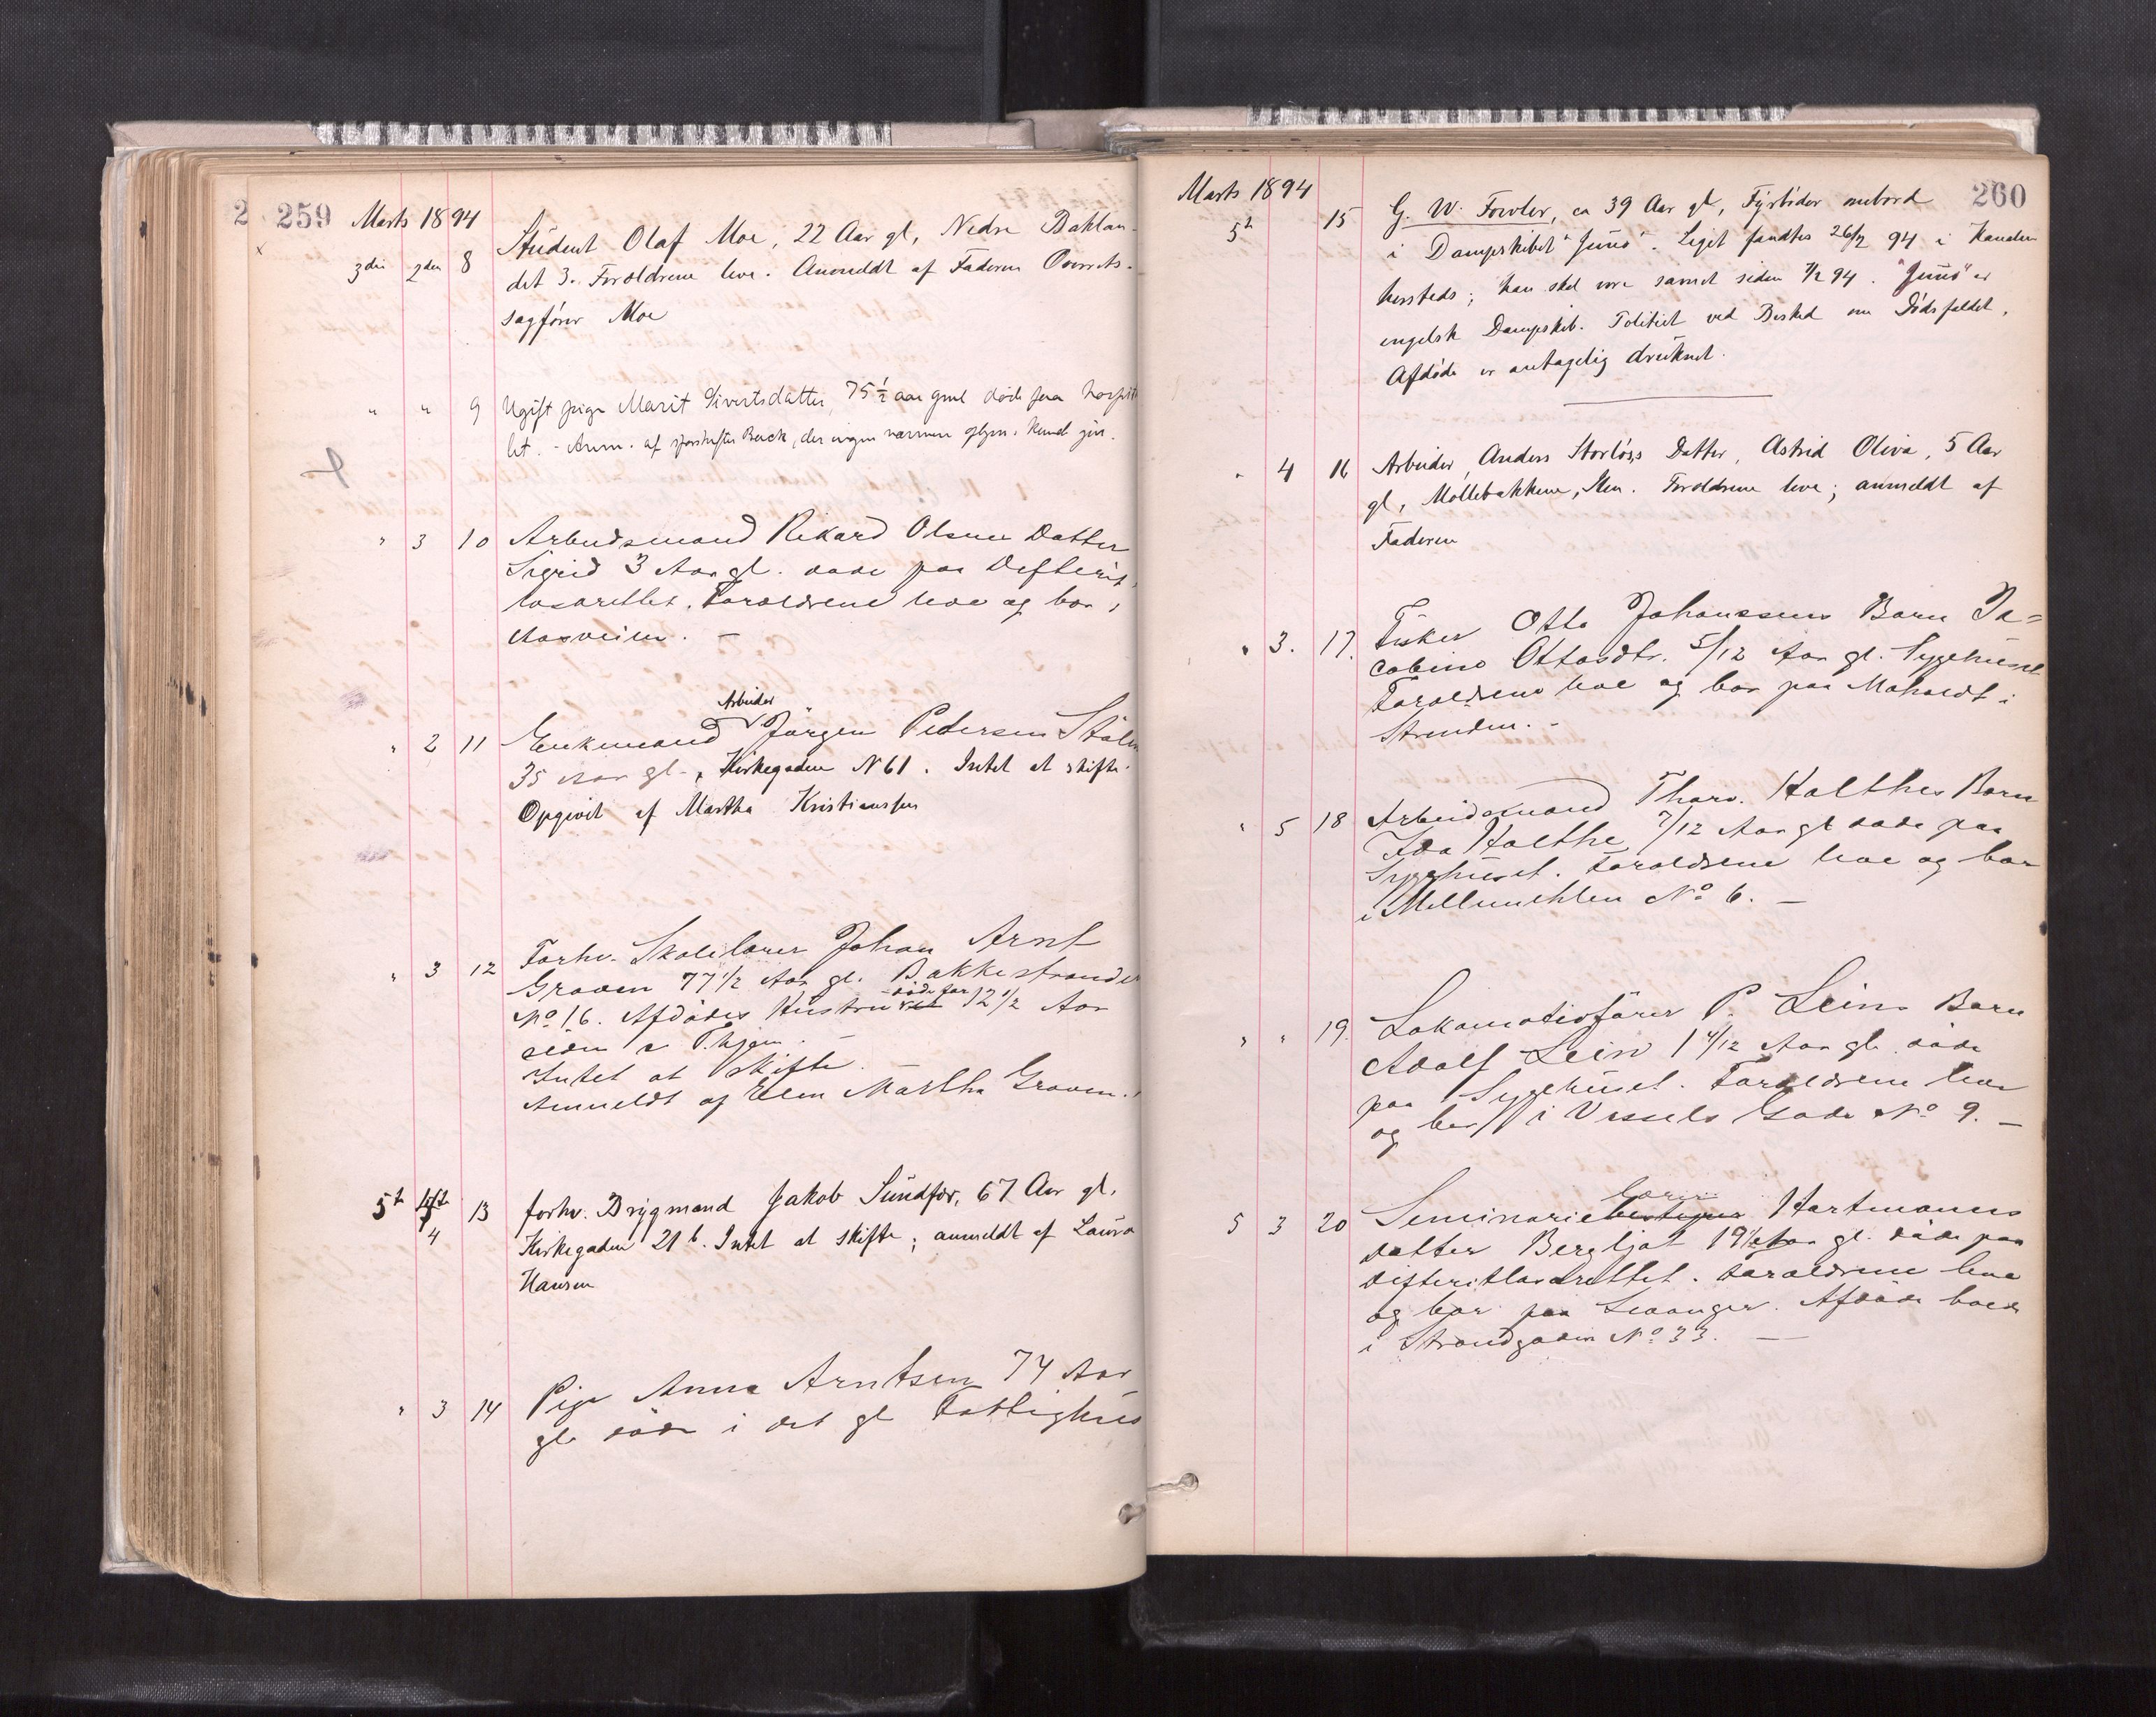 2
259
Marts 1894
3die 2den 8 Student Olaf Moe, 22 Aar gl, Nedre Baklan-
det 3. Forældrene leve. Anmeldt af Faderen Overrets-
sagfører Moe
" " 9 Ugift pige Marit Sivertsdatter, 75 1/2 aar gml døde paa hospita
let. - Anm. af Buck, der ingen nærmere oplysn. kunde give.
" 3 10 Arbeidsmand Rikard Olsens Datter
Sigrid 3 Aar gl. døde paa Defterit
lasarettet. Forældrene leve og bor i
Aasveien. -
Arbeider
" 2 11 Enkemand Jørgen Petersen Stölen
35 Aar gl., Kirkegaden N 61. Intet at skifte.
Opgivet af Martha Kristiansen
" 3 12 Forhv. Skolelærer Johan Arnt
Graven 77 1/2 Aar gl. Bakkestranden
døde for
No 16. Afdødes Hustru 12 1/2 Aar
siden i T.hjem. -
Intet at skifte.
Anmeldt af Elen Martha Graven.
5t 4 13 forhv. Brygmand Jakob Sundfær, 67 Aar gl.
Kirkegaden 21 b. Intet at skifte; anmeldt af Laura
Hansen
" 3 14 Pige Anna Arntsen 74 Aar
gl. døde i det gl Fattighus
260
Marts 1894
5t 15 G. W. Fowler, ca 39 Aar gl, Fyrbøder ombord
i Dampskibet "Juno". Liget fandtes 26/2 94 i Kanalen
hersteds; han skal være savnet siden 7/2 94. "Juno" er
engelsk Dampskib. Politiet ved Besked om Dødsfaldet,
Afdøde er antagelig druknet.
" 4 16 Arbeider Anders Storløs's Datter, Astrid Oliva, 5 Aar
gl, Møllebakkene, Ilen. Forældrene leve; anmeldt af
Faderen
" 3. 17. Fisker Otto Johanssens Barn Ja=
cobine Ottosdtr. 5/12 Aar gl. Sygehuset
Forældrene leve og bor paa Moholdt i
Strinden. -
" 5 18 Arbeidsmand Thorv. Holthes Barn
Ida Holthe 7/12 Aar gl døde paa
Sygehuset. Forældrene leve og bor
i Mellemilen No 6. -
" " 19. Lokomotivfører P. Leins Barn
Adolf Lein 1 4/12 Aar gl. døde
paa Sygehuset. Forældrene leve
og bor i Vessels Gade No 9. -
lærer
5 3 20 Seminariebestyrer Hartmanns
datter Bergljot 19 1/2 Aar gl. døde paa
difteritlasarettet. Forældrene leve
og bor paa Levanger. Afdøde boede
i Strandgaden No 33. -